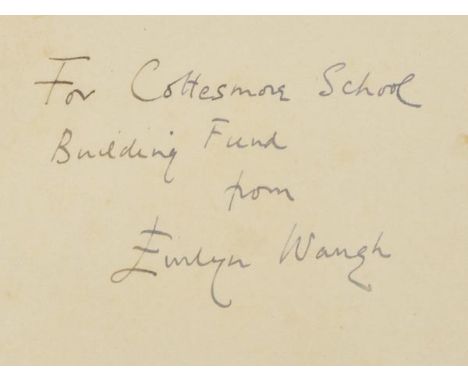 For Cottesmore School
Building Fund
from
Evelyn Waugh